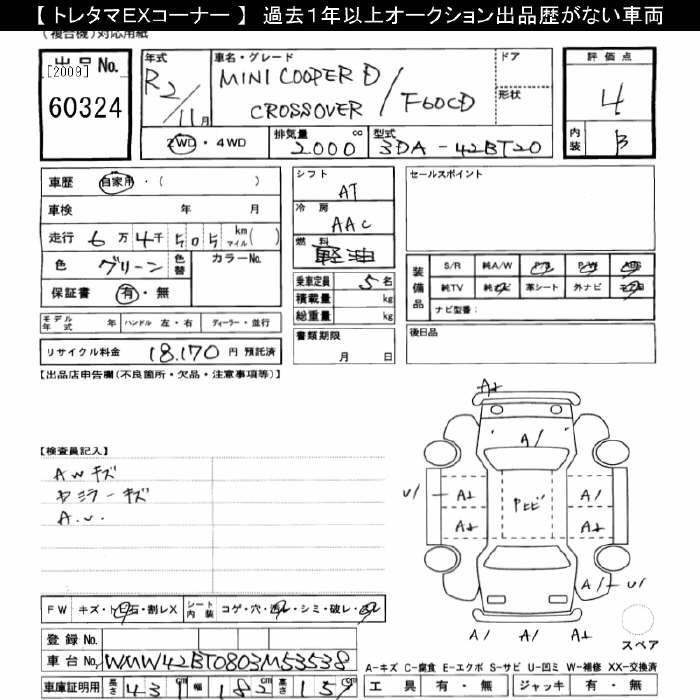 【 トレタマEXコーナー 】 過去１年以上オークション出品歴がない車両
(複合機) 対応用紙
出品No.
[2009]
60324
年式
R2/11月
車名・グレード
MINI COOPER D
CROSSOVER / F60CD
ドア
形状
評価点
4
内装
B
2WD・4WD
排気量
2000 cc
型式
3DA-42BT20
車歴 自家用・( )
車検 年 月
走行 6万4千505 km マイル( )
色 グリーン 色替 カラーNo.
保証書 有・無
モデル年式 年 ハンドル 左・右 ディーラー・並行
リサイクル料金 18,170円 預託済
シフト
AT
冷房
AAC
燃料
軽油
乗車定員 5名
積載量 kg
総重量 kg
書類期限
月 日
セールスポイント
装備品
S/R 純A/W P/S P/W ABS
純TV 純ナビ 革シート 外ナビ
ナビ型番：
後日品
【出品店申告欄(不良箇所・欠品・注意事項等)】
【検査員記入】
AWキズ
A.U.
A1
A1
U1
A1
A1
A1 U1
A1 A1 A1
スペア
FW キズ・ 石・割レX シート内装 コゲ・穴・ ・シミ・破レ・
登録No.
車台No. WMW42BT0803M53538
車庫証明用 長さ 431 幅 182 高さ 159
A-キズ C-腐食 E-エクボ S-サビ U-凹ミ W-補修 XX-交換済
工具 有・無 ジャッキ 有・無